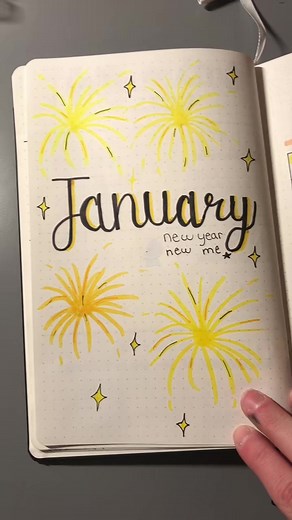 January
new year
new me